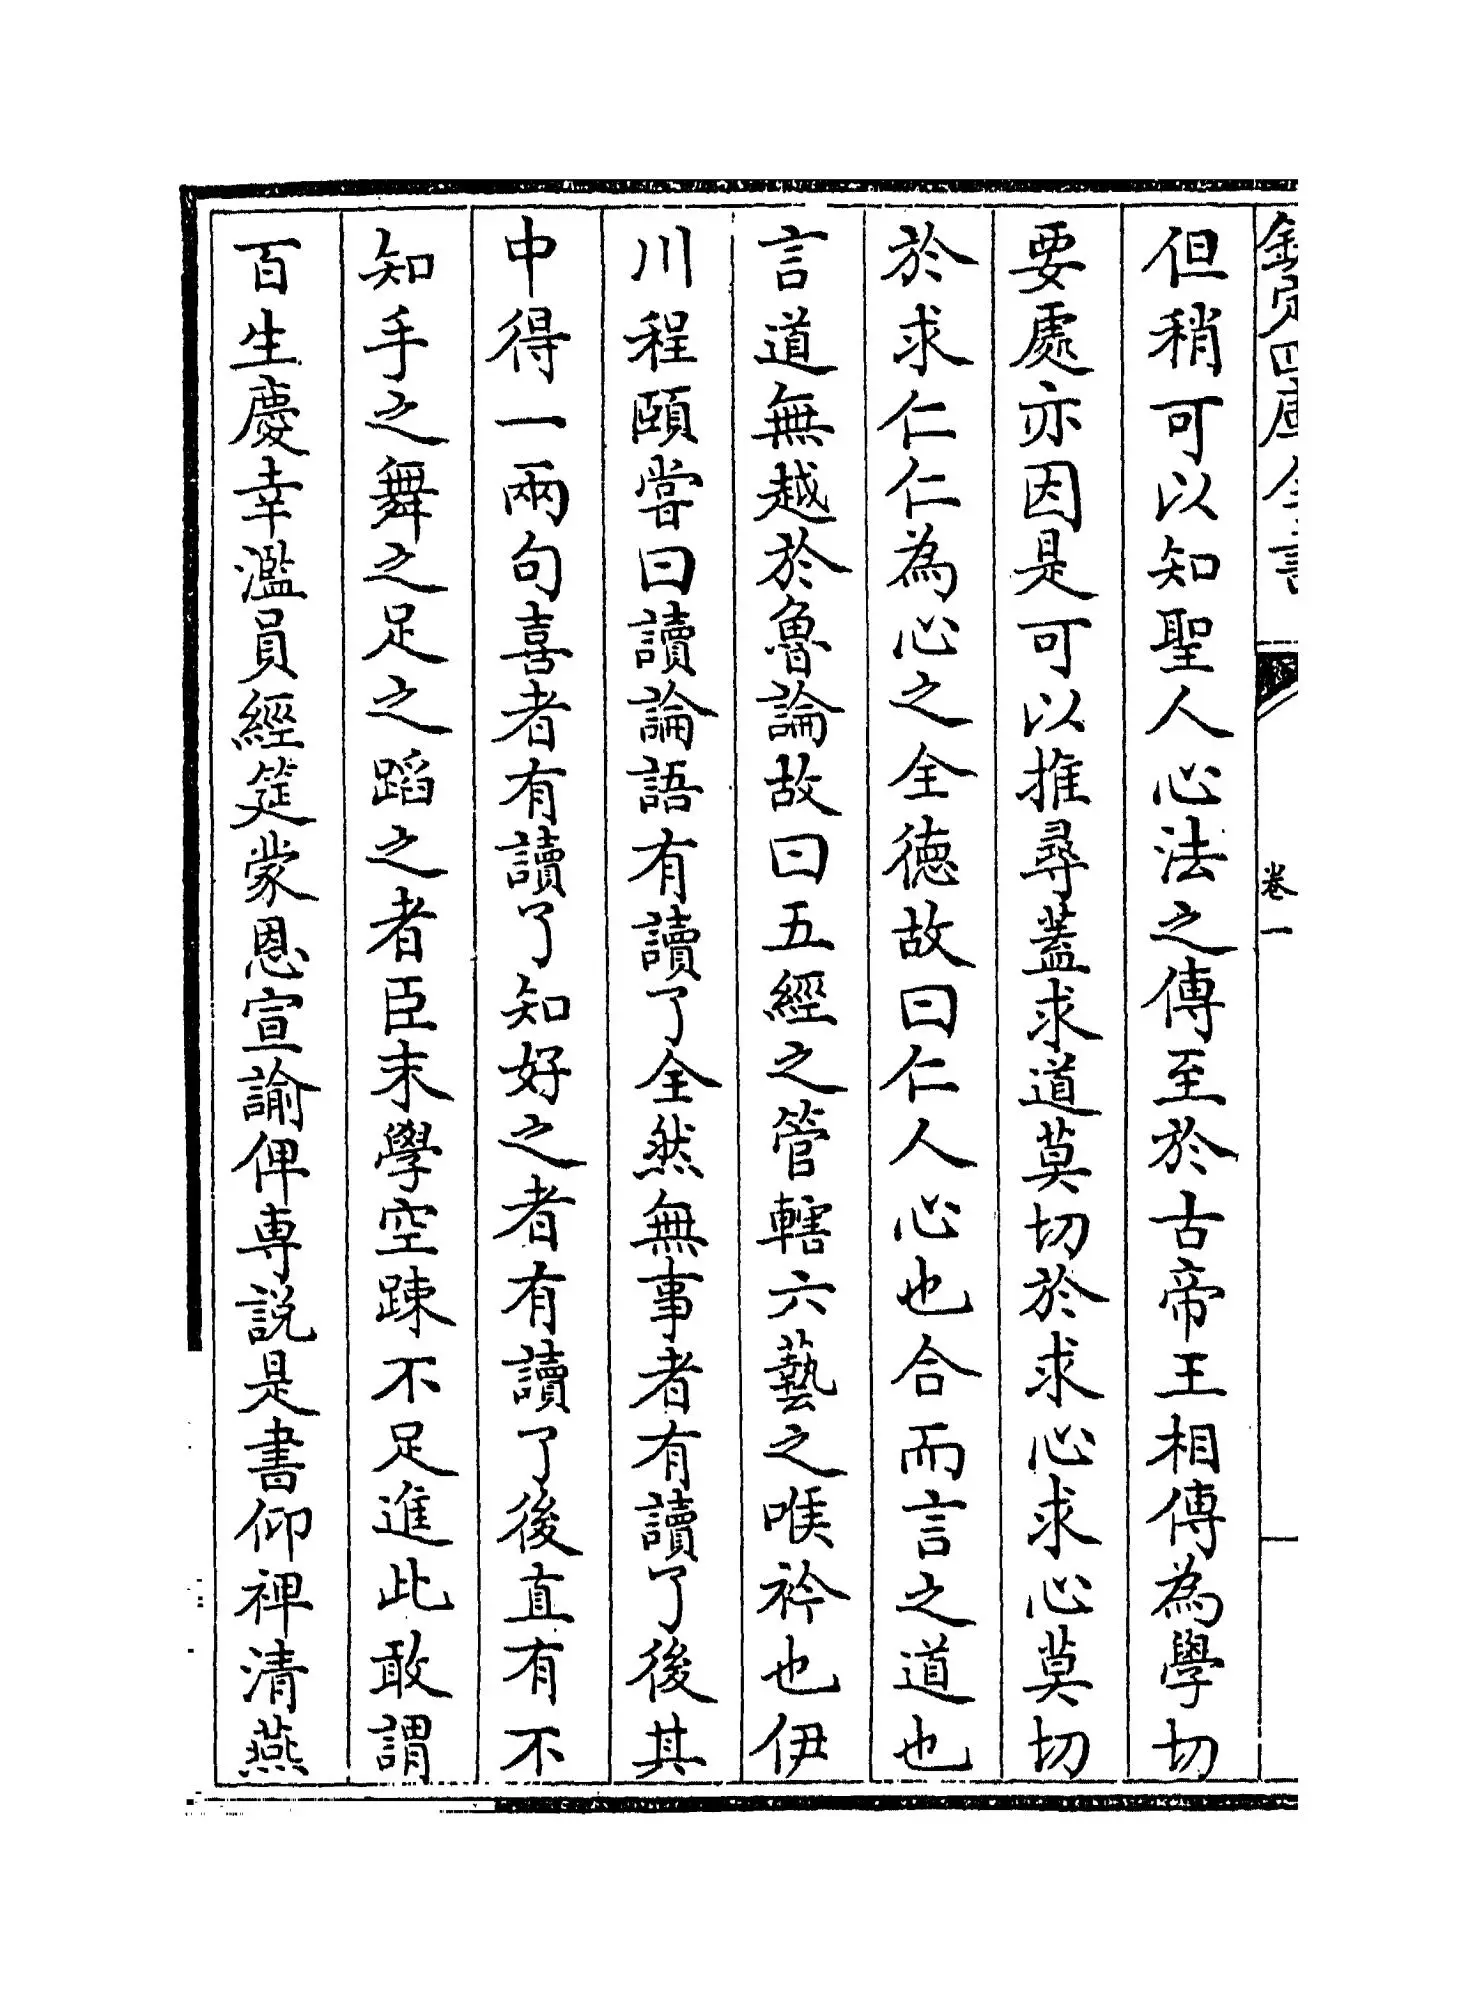 欽定四庫全書
卷一
但稍可以知聖人心法之傳至於古帝王相傳為學切
要處亦因是可以推尋蓋求道莫切於求心求心莫切
於求仁仁為心之全德故曰仁人心也合而言之道也
言道無越於魯論故曰五經之管轄六藝之喉衿也伊
川程頤嘗曰讀論語有讀了全然無事者有讀了後其
中得一兩句喜者有讀了知好之者有讀了後直有不
知手之舞之足之蹈之者臣末學空踈不足進此敢謂
百生慶幸濫員經筵蒙恩宣諭俾専説是書仰裨清燕